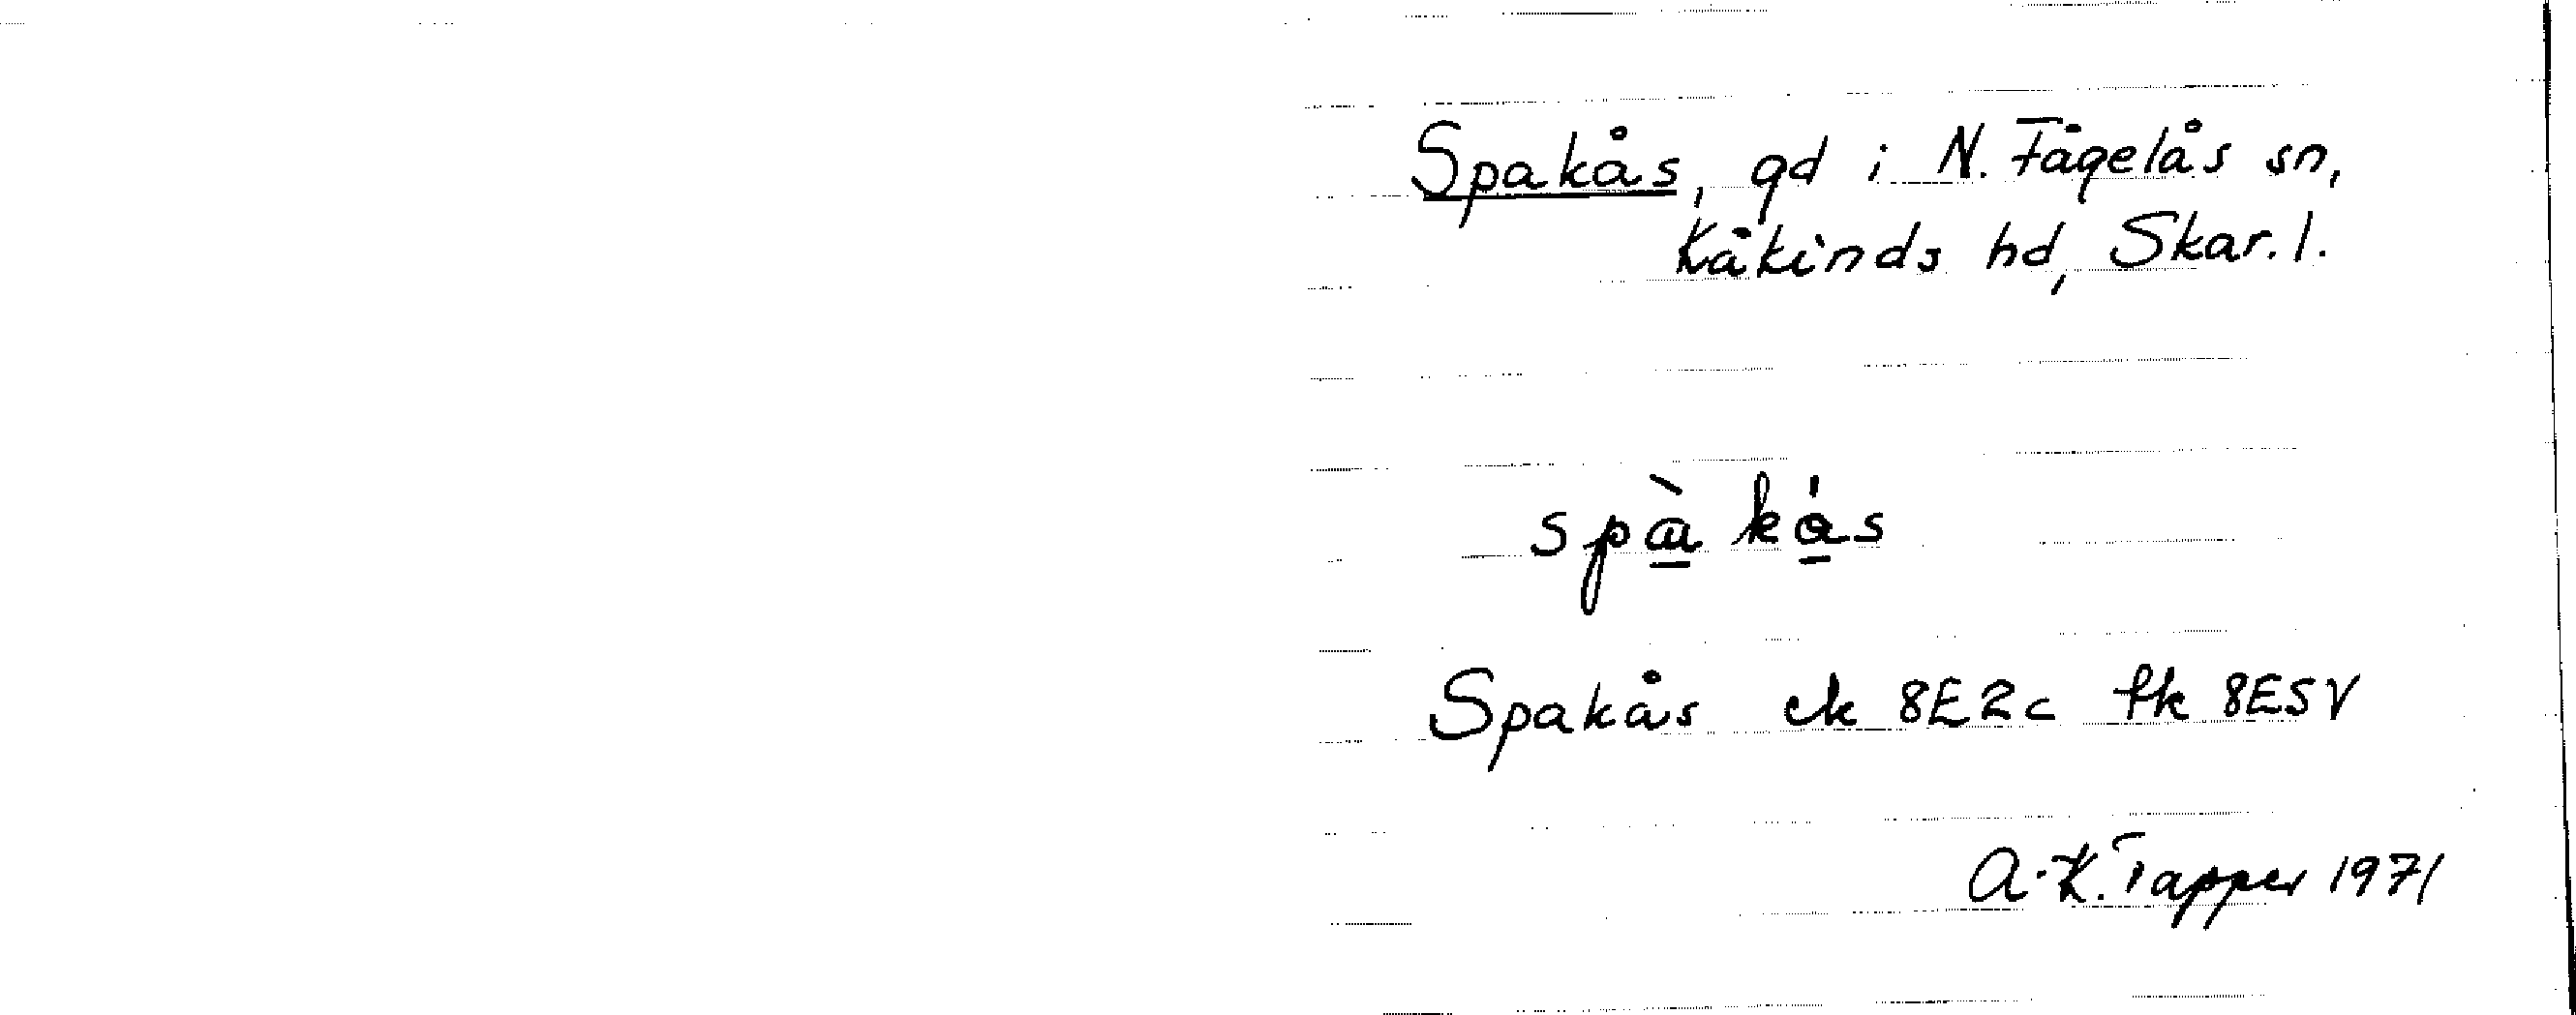 Spakås, gd i N. Fågelås sn,
Kåkinds hd, Skar. l.
Spakås ek 8E2c fk 8ESV
A-K. Tapper 1971